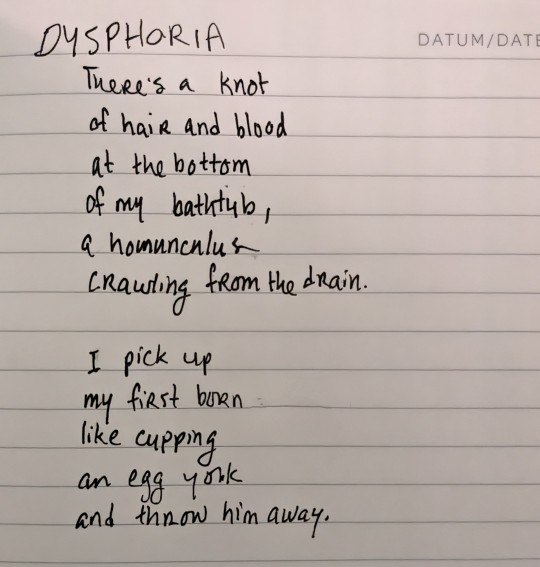 DYSPHORIA
DATUM/DATE
There's a knot
of hair and blood
at the bottom
of my bathtub,
a homunculus
crawling from the drain.
I pick up
my first born
like cupping
an egg yolk
and throw him away.